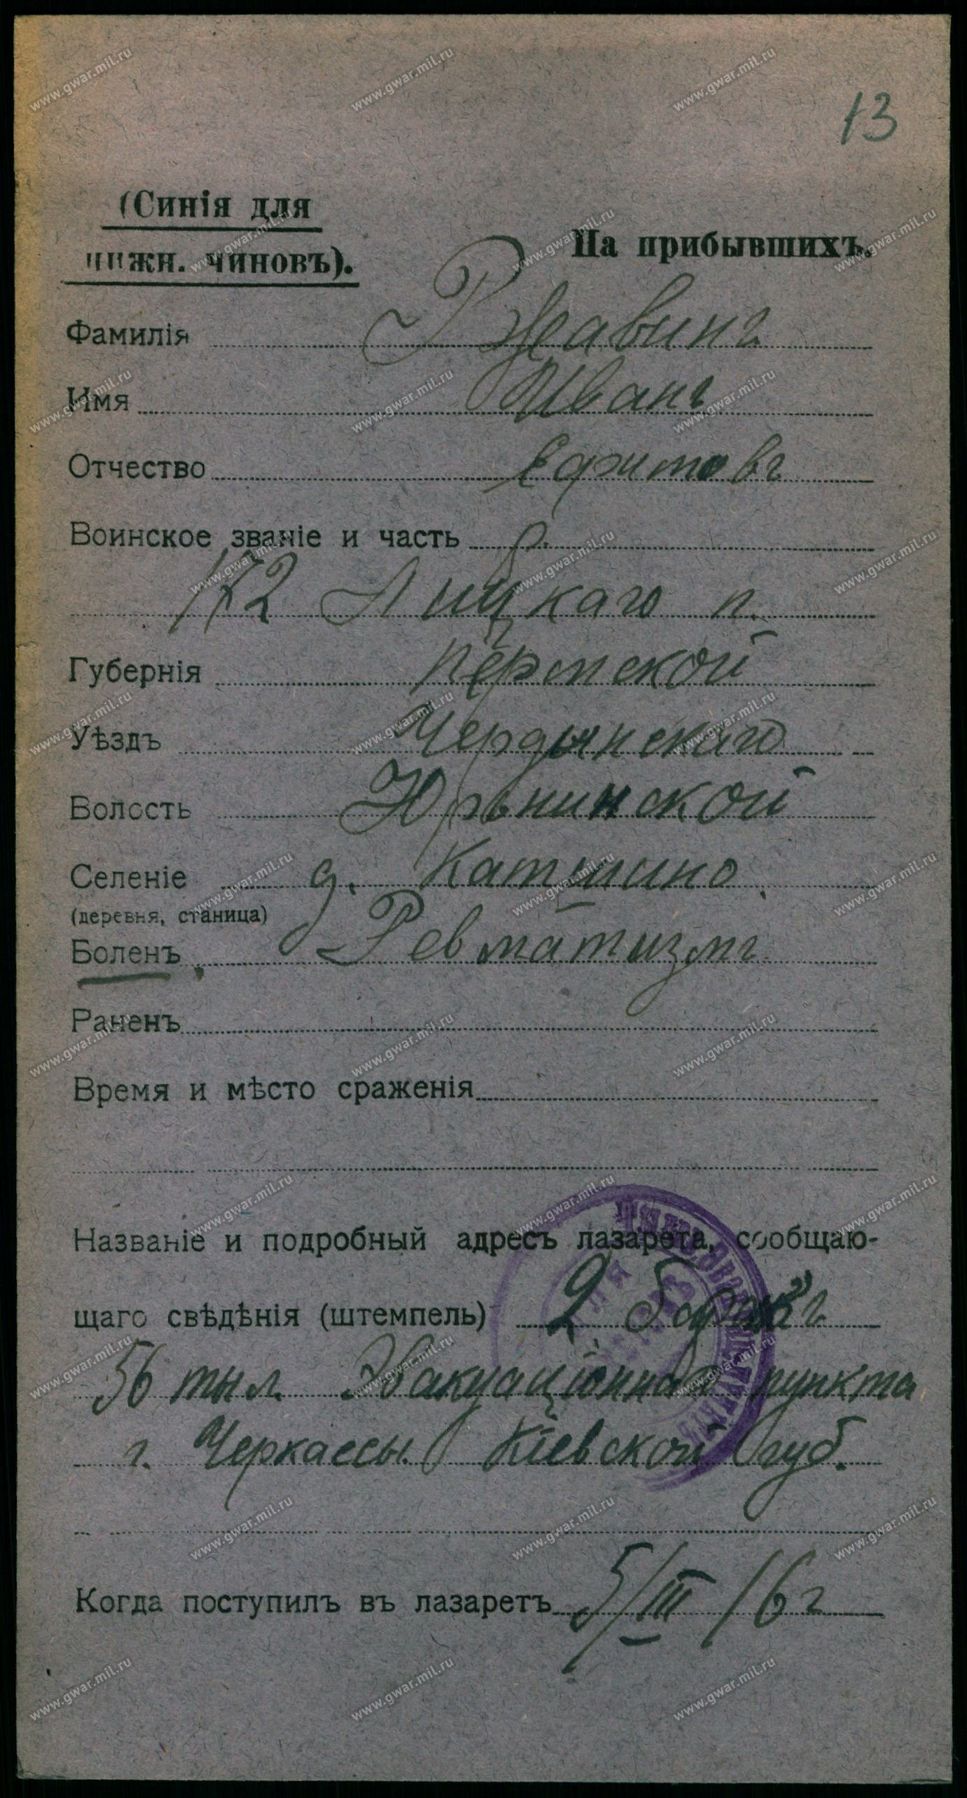 13
(Синія для
нижн. чиновъ).
На прибывшихъ.
Фамилія Ржавинъ
Имя Иванъ
Отчество
Воинское званіе и часть р.
172 Лидскаго п.
Губернія Пермской
Уѣздъ Чердынскаго
Волость Юрьнинской
Селеніе д. Катшино
(деревня, станица)
Боленъ Ревматизмъ
Раненъ
Время и мѣсто сраженія
Названіе и подробный адресъ лазарета, сообщаю-
щаго свѣдѣнія (штемпель) 2 баракъ
56 тыл. Эвакуаціоннаго пункта
г. Черкассы. Кіевской губ.
Когда поступилъ въ лазаретъ 5/III 16 г
www.gwar.mil.ru